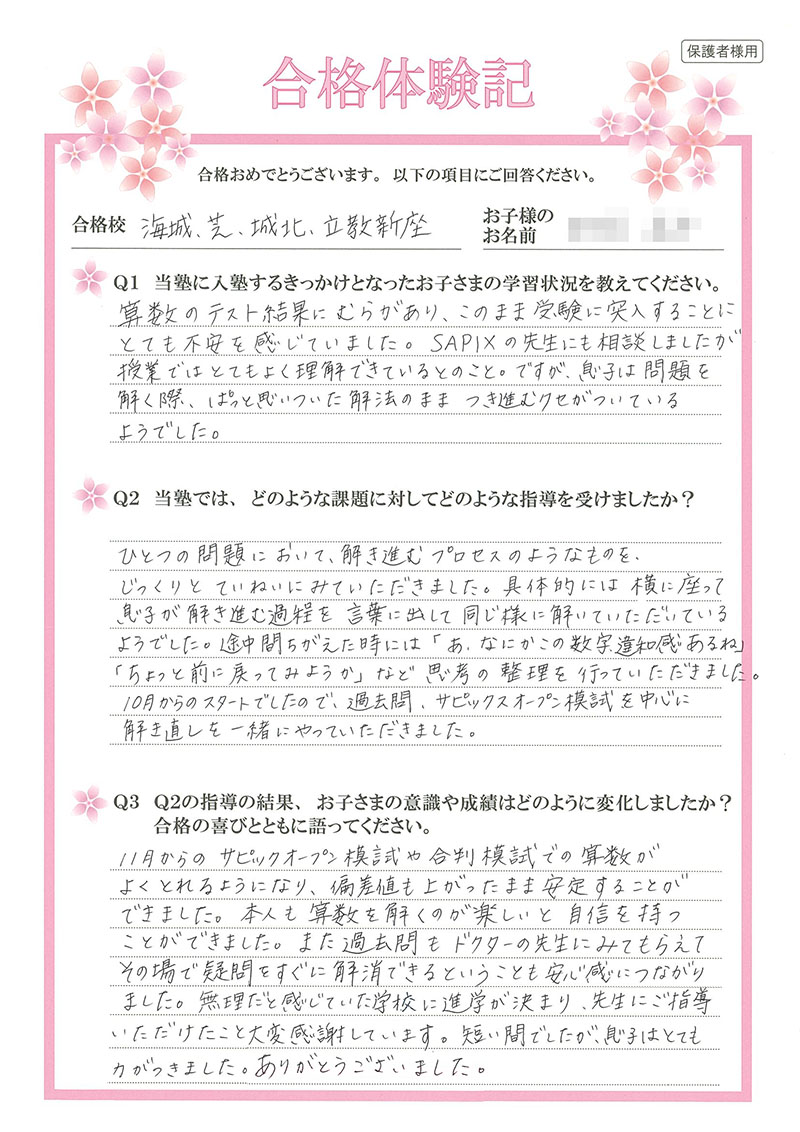 保護者様用
合格体験記
合格おめでとうございます。以下の項目にご回答ください。
合格校 海城、芝、城北、立教新座
お子様の
お名前
Q1 当塾に入塾するきっかけとなったお子さまの学習状況を教えてください。
算数のテスト結果にむらがあり、このまま受験に突入することに
とても不安を感じていました。SAPIXの先生にも相談しましたが
授業ではとてもよく理解できているとのこと。ですが、息子は問題を
解く際、ぱっと思いついた解法のまま つき進むクセがついている
ようでした。
Q2 当塾では、どのような課題に対してどのような指導を受けましたか？
ひとつの問題において、解き進むプロセスのようなものを、
じっくりとていねいにみていただきました。具体的には横に座って
息子が解き進む過程を言葉に出して同じ様に解いていただいている
ようでした。途中間ちがえた時には「あ、なにかこの数字違和感あるね」
「ちょっと前に戻ってみようか」など思考の整理を行っていただきました。
10月からのスタートでしたので、過去問、サピックスオープン模試を中心に
解き直しを一緒にやっていただきました。
Q3 Q2の指導の結果、お子さまの意識や成績はどのように変化しましたか？
合格の喜びとともに語ってください。
11月からのサピックオープン模試や合判模試での算数が
よくとれるようになり、偏差値も上がったまま安定することが
できました。本人も算数を解くのが楽しいと自信を持つ
ことができました。また過去問もドクターの先生にみてもらえて
その場で疑問をすぐに解消できるということも安心感につながり
ました。無理だと感じていた学校に進学が決まり、先生にご指導
いただけたこと大変感謝しています。短い間でしたが、息子はとても
力がつきました。ありがとうございました。